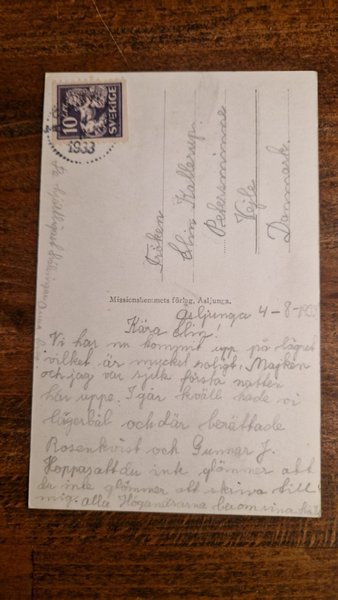 10
SVERIGE
1933
Fröken
Elin Kallerup
Petersminne
Vejle
Danmark
Missionshemmets förlag, Asljunga.
Asljunga 4-8-1933
Kära Elin!
Vi har nu kommit upp på lägret
vilket är mycket roligt. Majken
och jag var sjuk första natten
här uppe. I går kväll hade vi
lägerbål och där berättade
Rosenkvist och Gunnar J.
Hoppas att du inte glömmer att
du inte glömmer att skriva till
mig. alla